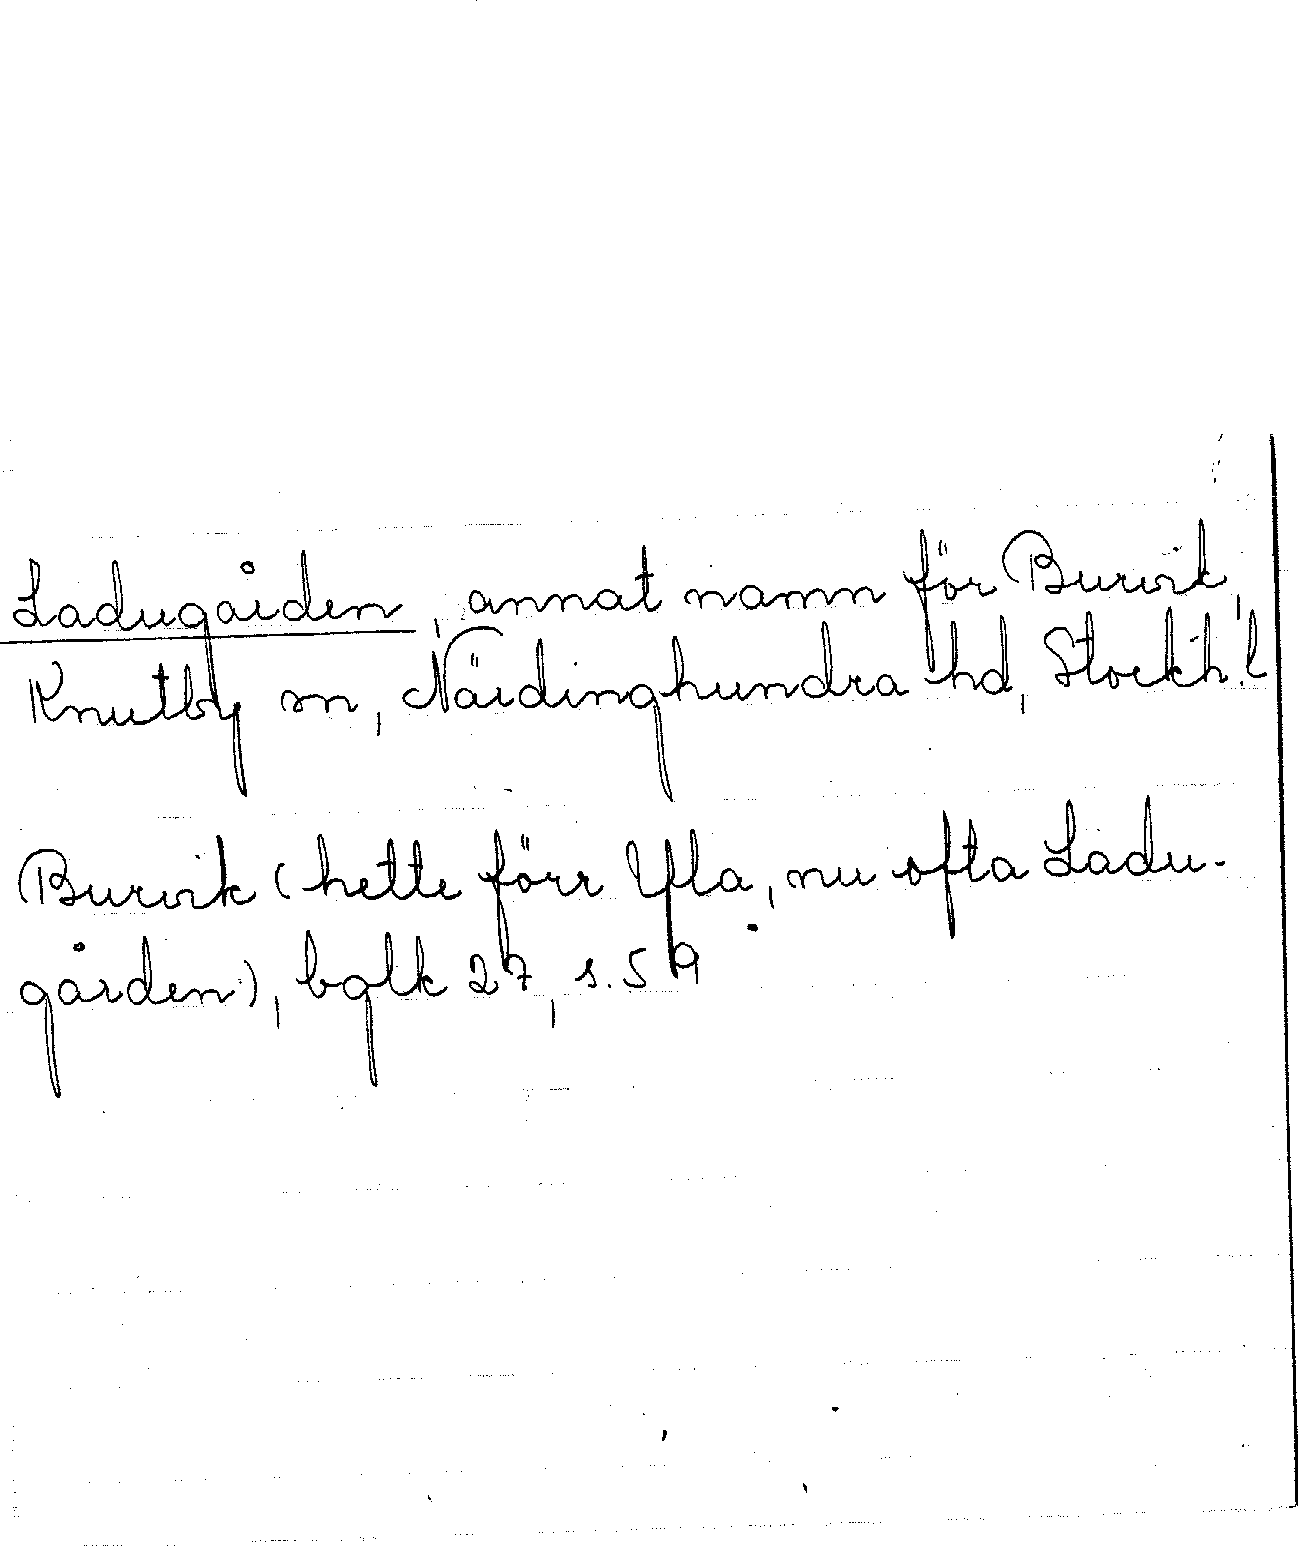 Ladugården, annat namn för Burvik,
Knutby sn, Närdinghundra hd, Stockh. l
Burvik (hette förr Yfla, nu ofta Ladu-
gården), bglk 27, s. 59